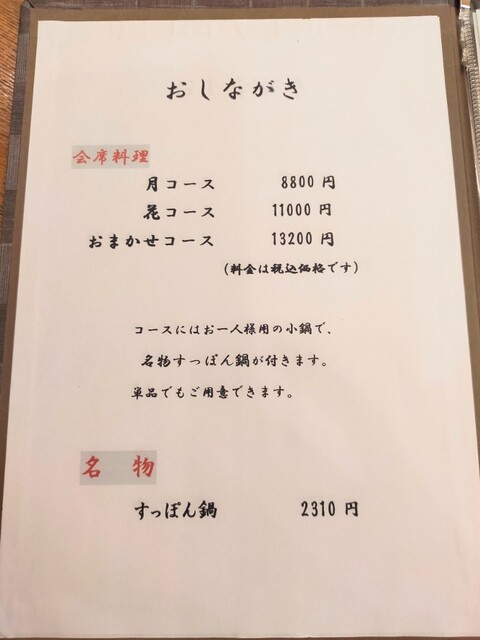 おしながき
会席料理
月コース 8800 円
花コース 11000 円
おまかせコース 13200 円
(料金は税込価格です)
コースにはお一人様用の小鍋で、
名物すっぽん鍋が付きます。
単品でもご用意できます。
名 物
すっぽん鍋 2310 円